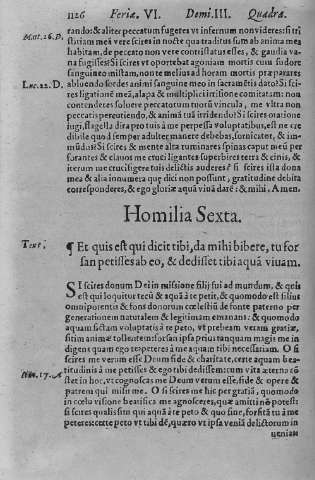 1126 Feriæ. VI. Domi. III. Quadra.
rando: & aliter peccatum fugeres vt infernum non videres: si tri
Mat. 26. D. stitiam meā vere scires in nocte qua traditus sum ab anima mea
habitam, de peccato non vere contristatus esses, & gaudia va-
na fugisses! Si scires vt oportebat agoniam mortis cum sudore
sanguineo mistam, nonne melius ad horam mortis præparares
Luc. 22. D. abluendo sordes animi sanguine meo in sacramētis dato! Si sci-
res ligationē meā, alapa & multiplici irrisione comitatam: non
contenderes soluere peccatorum tuorū vincula, me vltra non
peccatis percutiendo, & animā tuā irridendo! Si scires oratione
iugi, flagella dira pro tuis à me perpessa voluptatibus, est ne cre
dibile quod semper adulter manere debebas, fornicator, & im-
mūdus! Si scires & mente alta ruminares spinas caput meū per
forantes & clauos me cruci ligantes superbires terra & cinis, &
iterum me crucifigere tuis delictis auderes? si scires ista dona
mea & alia innumera quę dici non possunt, gratitudine debita
corresponderes, & ego gloriæ aquā viuā darē: & mihi, Amen.
Homilia Sexta.
Text. ¶ Et quis est qui dicit tibi, da mihi bibere, tu for
san petisses ab eo, & dedisset tibi aquā viuam.
SI scires donum Dei in missione filij sui ad mundum, & quis
est qui loquitur tecū & aquā à te petit, & quomodo est filius
omnipotentis & fons donorum cœlestiū de fonte paterno per
generationem naturalem & legitimam emanans: & quomodo
aquam sictam voluptatis à te peto, vt prebeam veram gratiæ,
sitim animæ tollentem: forsan ipsa prius tanquam magis me in
digens quam ego te peteres à me aquam tibi necessariam. O si
scires me verum esse Deum fide & charitate, certe aquam bea-
titudinis à me petisses & ego tibi dedissem: cum vita æterna cō
Ioan. 17. A stet in hoc, vt cognoscas me Deum verum esse, fide & opere &
patrem qui misit me. O si scires me hic per gratiā, quomodo
in cœlu visione beatifica me agnosceres, quæ amitti nō potest:
si scires qualis sim qui aquā à te peto & quo sine, forsitā tu à me
peteres: certe peto vt tibi dē, quæro vt ipsa veniā delictorum in
ueniam